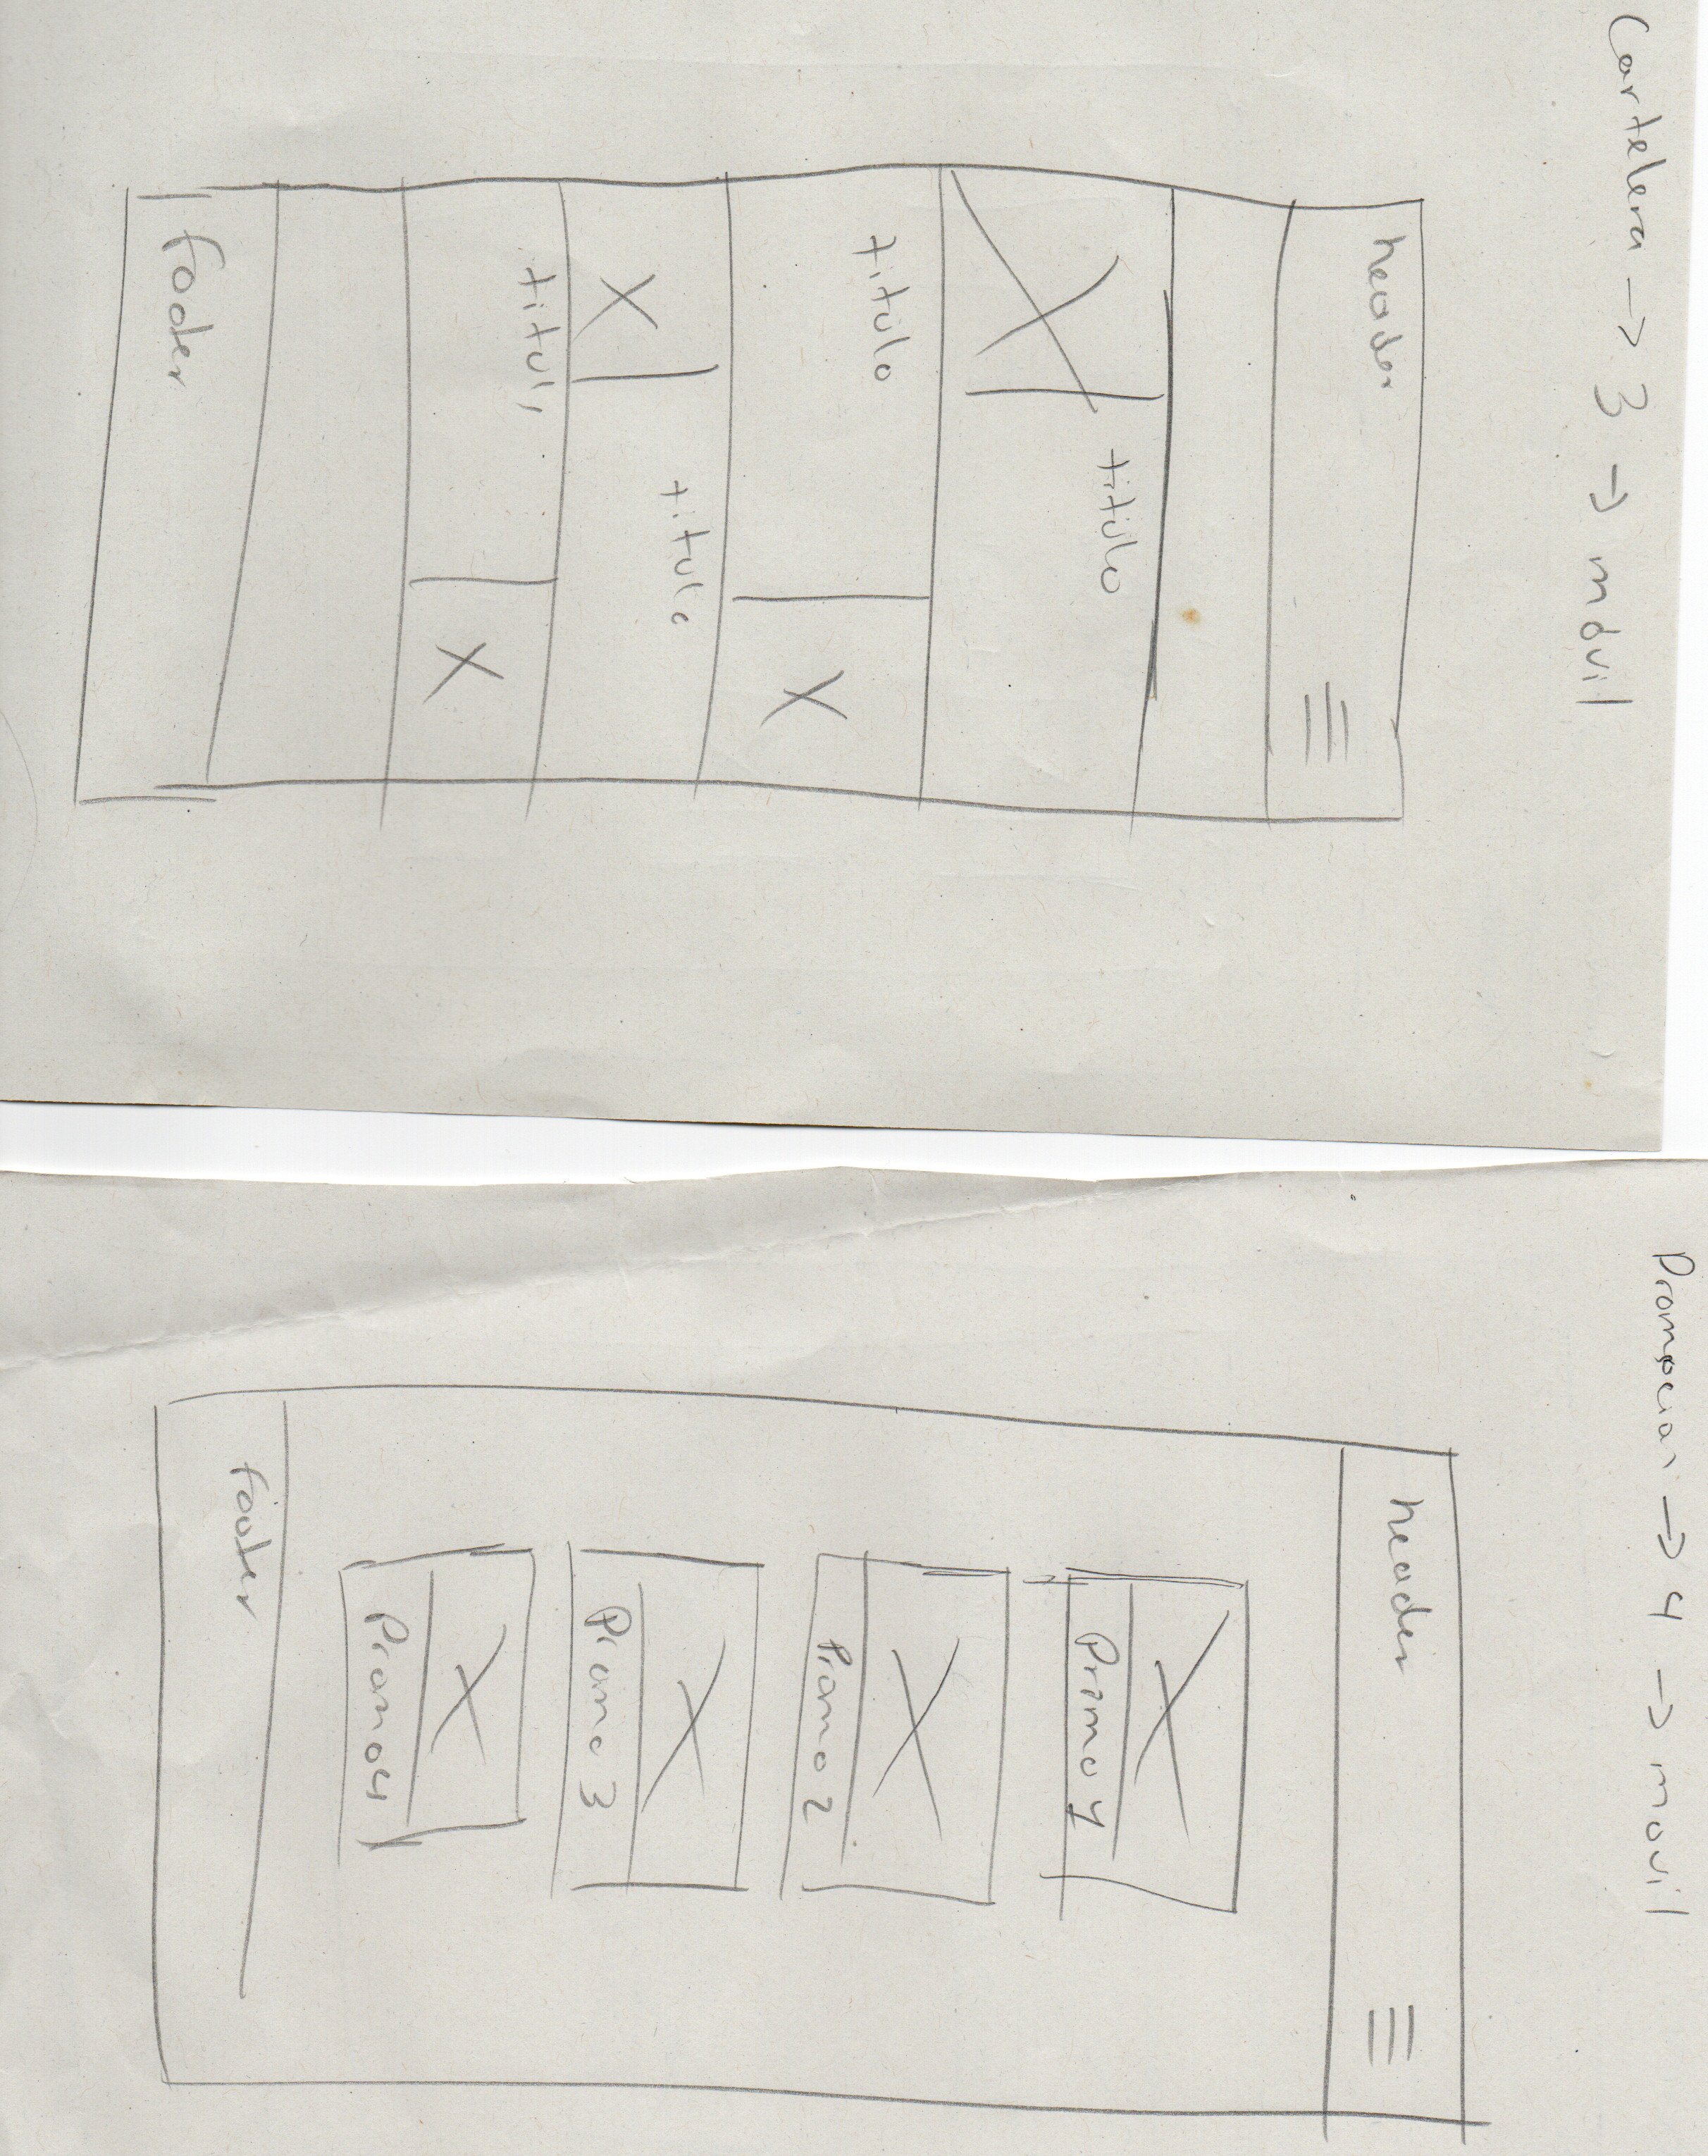 Cartelera -> 3 -> móvil
header
titulo
titulo
titulo
titulo
footer
-> 4 -> movil
header
Promo 1
Promo 2
Promo 3
Promo 4
footer